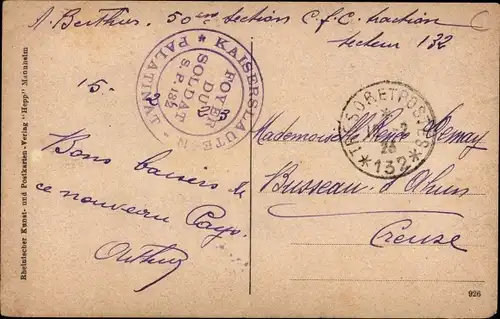 A. Berthier, 50ème section C.f.C. traction
secteur 132
KAISERSLAUTERN - PALATINAT
FOYER
DU
SOLDAT
S.P. 132
15. 2 23
TRESOR ET POSTES
23
* 132 *
Mademoiselle
Busseau-d'Ahun
Creuse
Bons baisers de
ce nouveau Pays.
Arthur
Rheinischer Kunst- und Postkarten-Verlag "Hepp" Mannheim
926